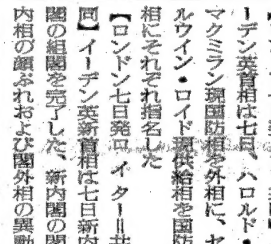 ーデン英首相は七日、ハロルド・
マクミラン現国防相を外相に、セ
ルウイン・ロイド現供給相を国防
相にそれぞれ指名した
【ロンドン七日発ロイター＝共
同】イーデン英新首相は七日新内
閣の組閣を完了した、新内閣の閣
内相の顔ぶれおよび閣外相の異動